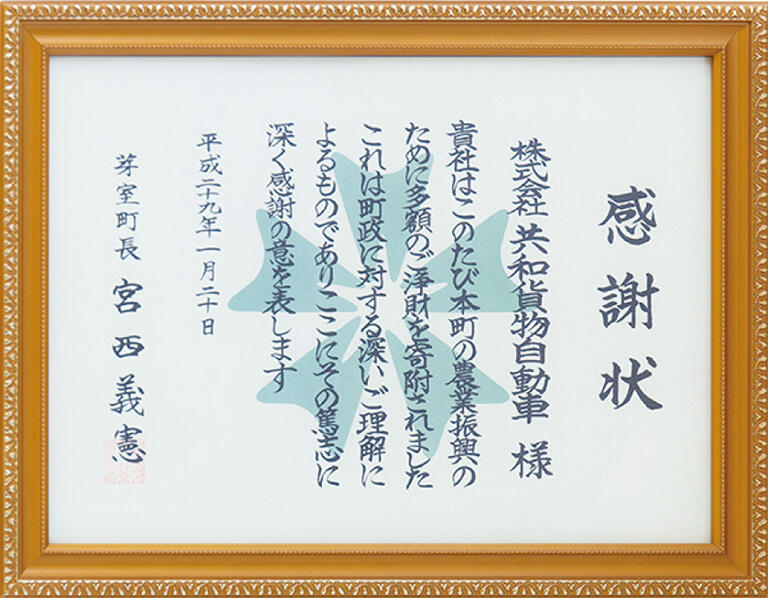 感謝状
株式会社 共和貨物自動車 様
貴社はこのたび本町の農業振興の
ために多額のご浄財を寄附されました
これは町政に対する深いご理解に
よるものでありここにその篤志に
深く感謝の意を表します
平成二十九年一月二十日
芽室町長 宮西義憲